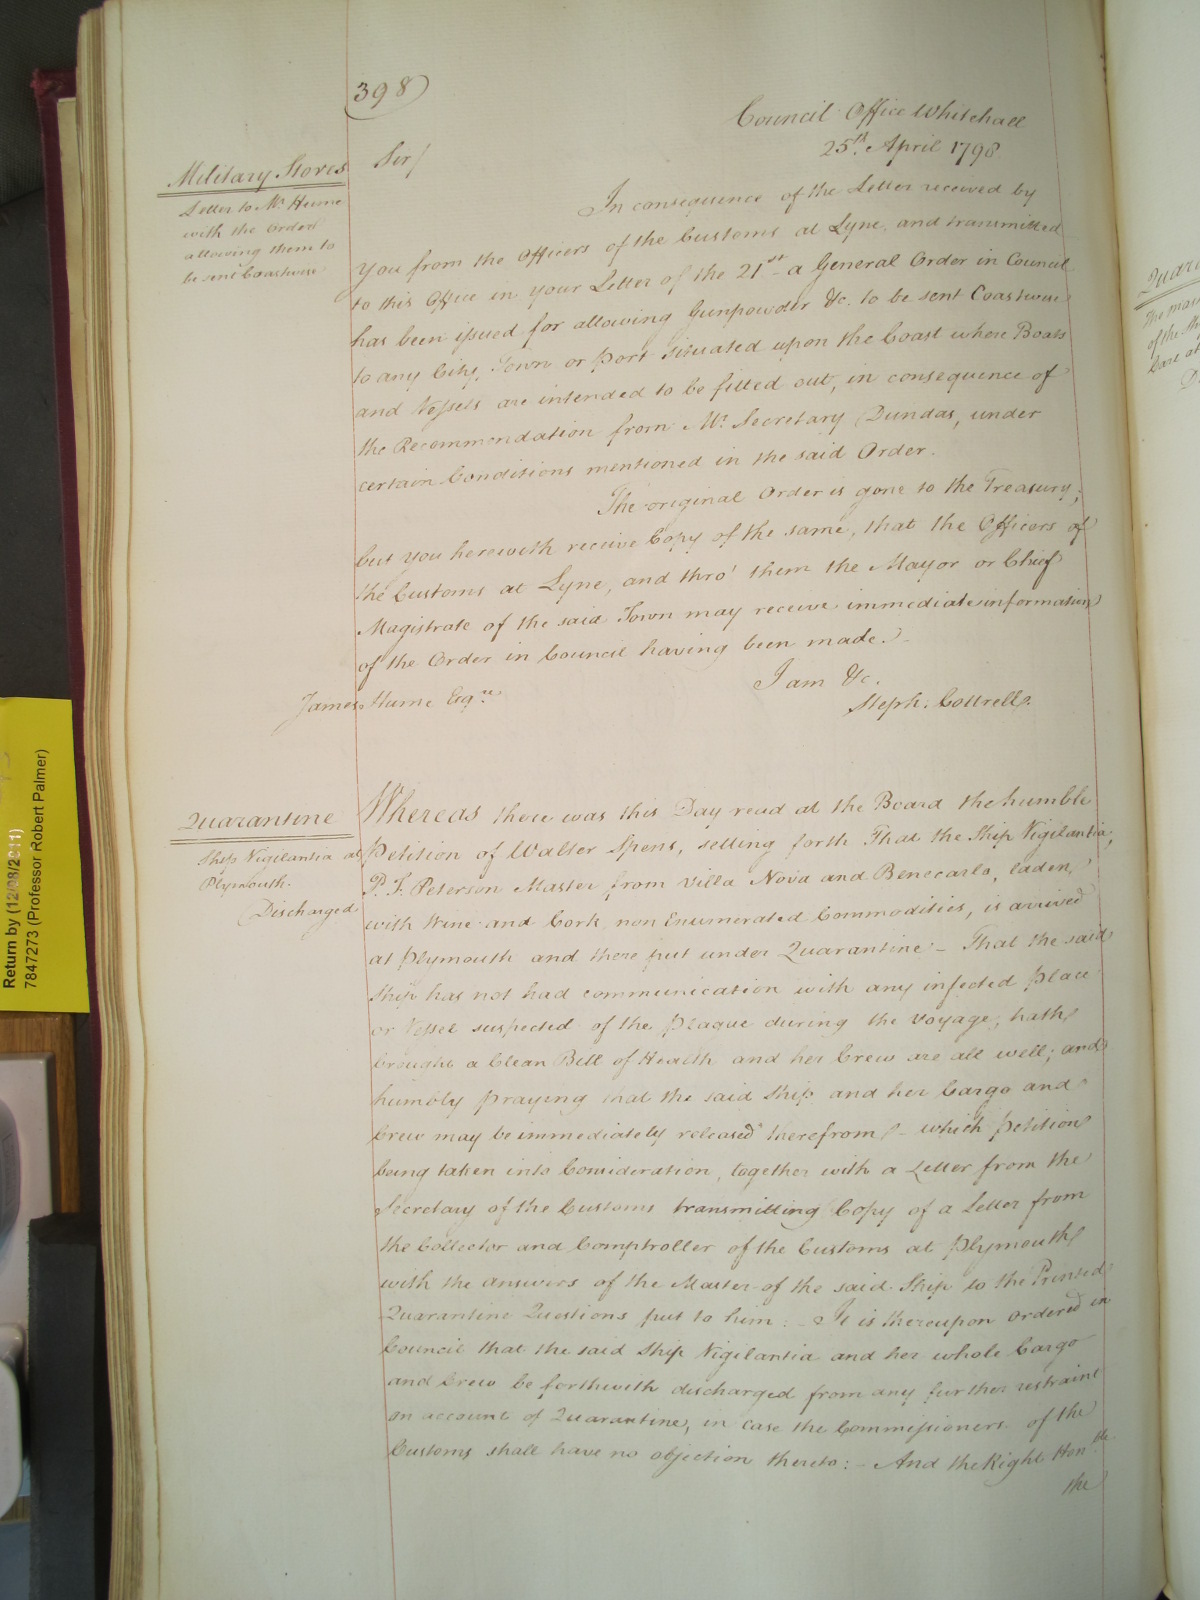 398
Council Office Whitehall
25th. April 1798
Military Stores
Letter to Mr Hume
with the Order
allowing them to
be sent Coastwise
Sir/
In consequence of the Letter received by
you from the Officers of the Customs at Lyne, and transmitted
to this Office in your Letter of the 21st a General Order in Council
has been issued for allowing Gunpowder &c. to be sent Coastwise
to any City, Town or Port situated upon the Coast where Boats
and Vessels are intended to be fitted out, in consequence of
the Recommendation from Mr. Secretary Dundas, under
certain Conditions mentioned in the said Order.
The original Order is gone to the Treasury;
but you herewith receive Copy of the same, that the Officers of
the Customs at Lyne, and thro' them the Mayor or Chief
Magistrate of the said Town may receive immediate information
of the Order in Council having been made.
I am &c.
James Hume Esqre
Steph. Cottrell.
Quarantine
Ship Vigilantia at
Plymouth.
Discharged
Whereas there was this Day read at the Board the humble
Petition of Walter Spens, setting forth That the Ship Vigilantia,
P. F. Peterson Master from Villa Nova and Benecarlo, laden
with Wine and Cork non Enumerated Commodities, is arrived
at Plymouth and there put under Quarantine - That the said
Ship has not had communication with any infected Place
or Vessel suspected of the Plague during the Voyage, hath
brought a Clean Bill of Health and her Crew are all well; and
humbly praying that the said Ship and her Cargo and
Crew may be immediately released therefrom - which Petition
being taken into Consideration, together with a Letter from the
Secretary of the Customs transmitting Copy of a Letter from
the Collector and Comptroller of the Customs at Plymouth
with the answers of the Master of the said Ship to the Printed
Quarantine Questions put to him: - It is thereupon ordered in
Council that the said Ship Vigilantia and her whole Cargo
and Crew be forthwith discharged from any further restraint
on account of Quarantine, in case the Commissioners of the
Customs shall have no objection thereto: - And the Right Honble
the
Return by (12/08/2011)
7847273 (Professor Robert Palmer)